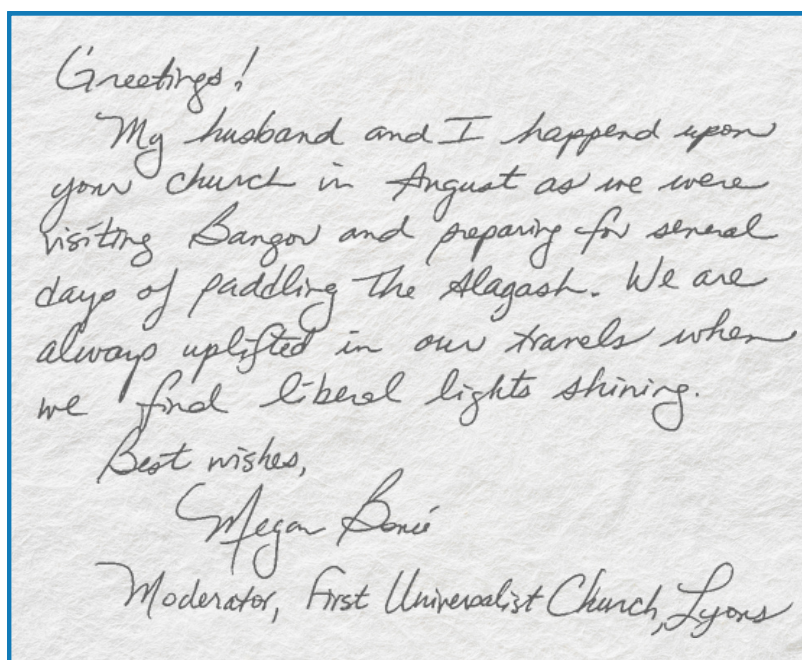 Greetings!
My husband and I happend upon
your church in August as we were
visiting Bangor and preparing for several
days of paddling the Alagash. We are
always uplifted in our travels when
we find liberal lights shining.
Best wishes,
Megan
Moderator, First Universalist Church, Lyons